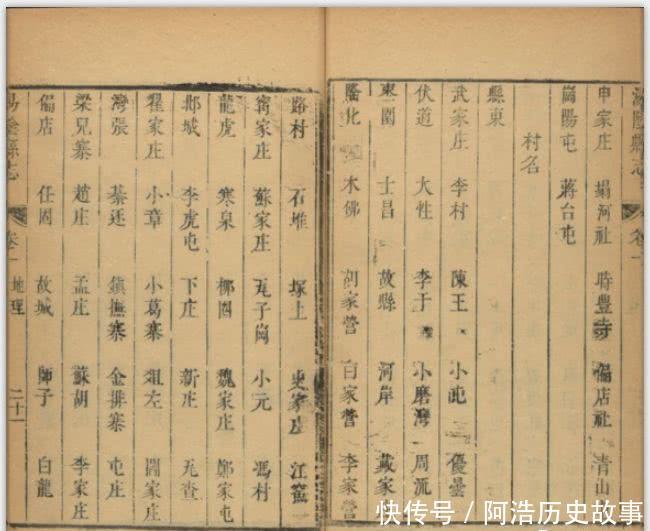 申家庄 塌河社 時豐寺 偏店社 青山
崗陽屯 蔣台屯
村名
縣東
武家庄 李村 陳王 小屯 優曇
伏道 大性 李于 小磨灣 周流
東圍 士昌 故縣 河岸 戴家
隆北 木佛 劉家營 白家營 李家
路村 石堆 塚上 史家庄 江窰
甯家庄 蘇家庄 瓦子崗 小元 馮村
龍虎 寒泉 梛園 魏家庄 鄭家屯
邶城 李虎屯 下庄 新庄 元查
翟家庄 小章 小葛寨 俎左 關家庄
灣張 綦廷 鎮撫寨 金排寨 屯庄
梁兒寨 趙庄 孟庄 蘇胡 李家庄
偏店 任固 故城 師子 白龍
湯陰縣志 卷一 地理 二十一
快传号／阿浩历史故事